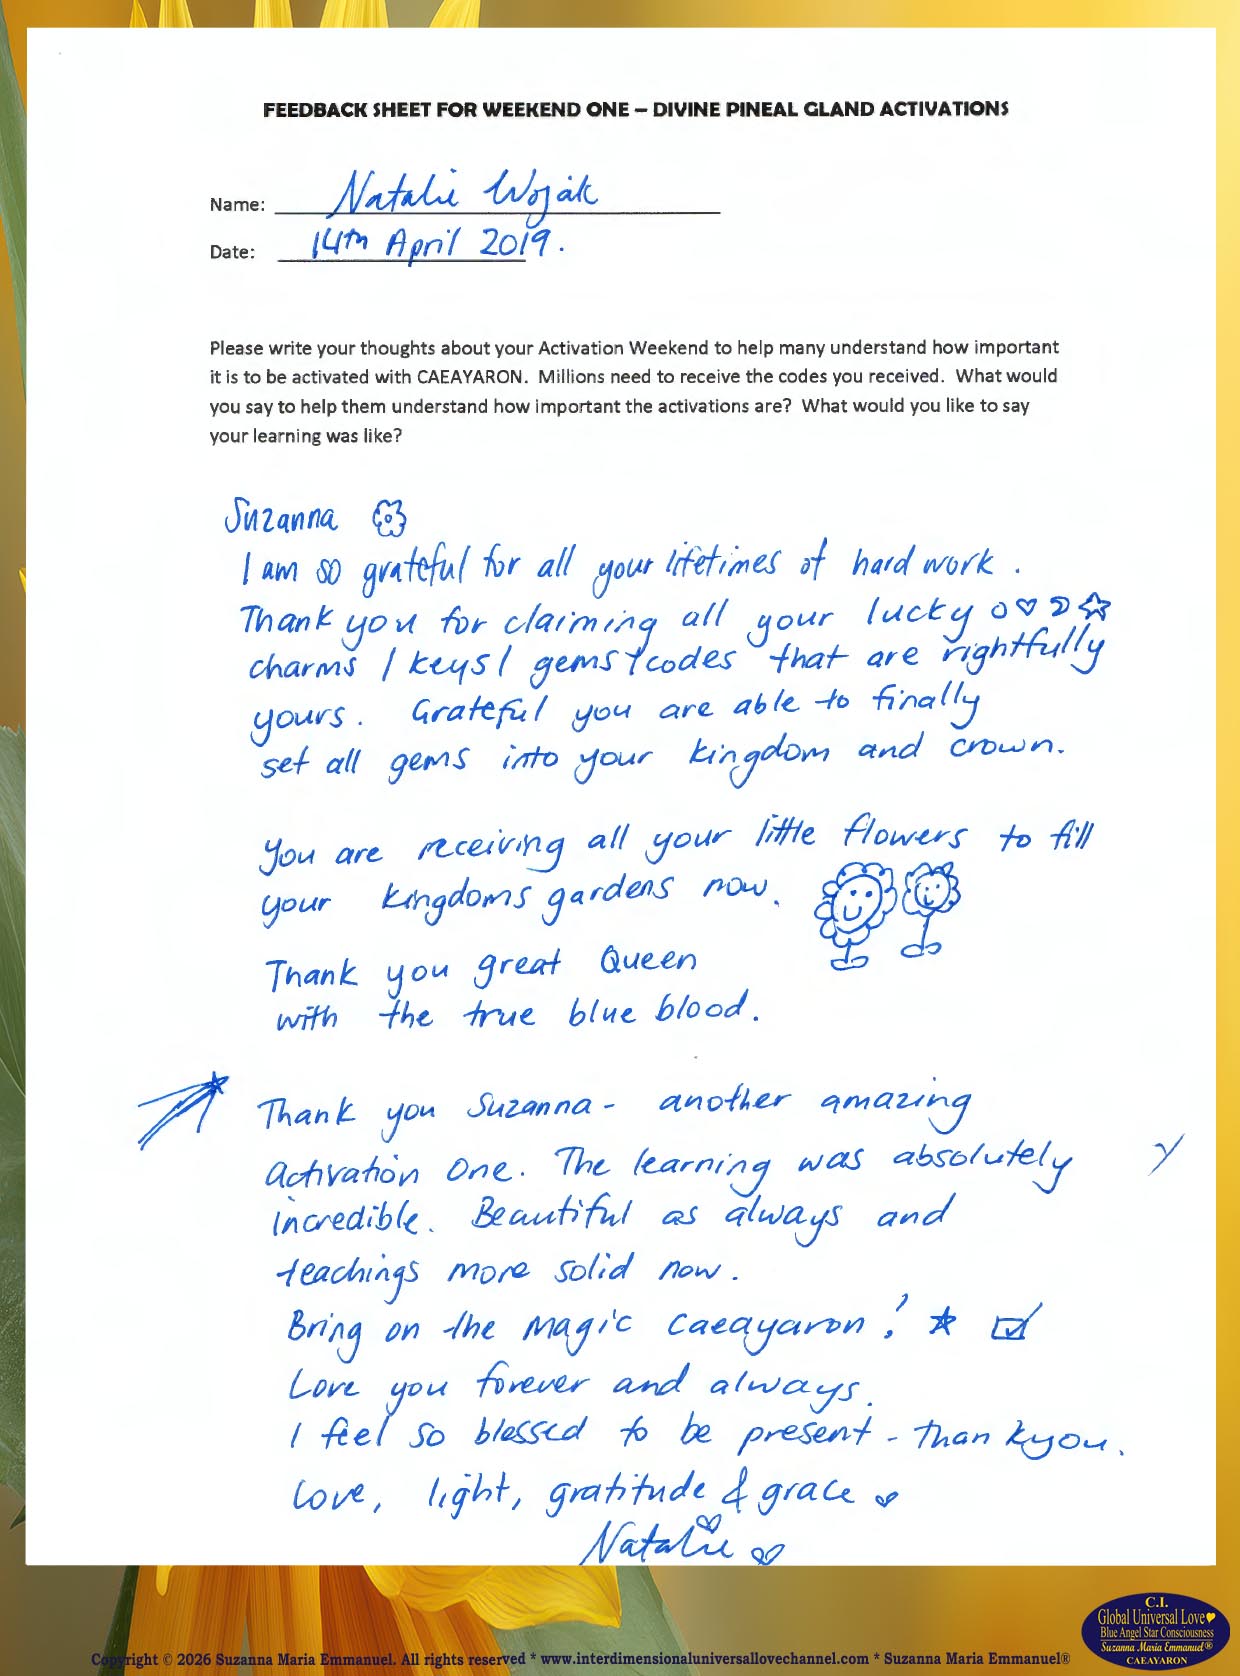 FEEDBACK SHEET FOR WEEKEND ONE – DIVINE PINEAL GLAND ACTIVATIONS
Name: Natalie Woják
Date: 14th April 2019.
Please write your thoughts about your Activation Weekend to help many understand how important
it is to be activated with CAEAYARON. Millions need to receive the codes you received. What would
you say to help them understand how important the activations are? What would you like to say
your learning was like?
Suzanna
I am so grateful for all your lifetimes of hard work.
Thank you for claiming all your lucky
charms / keys / gems / codes that are rightfully
yours. Grateful you are able to finally
set all gems into your kingdom and crown.
You are receiving all your little flowers to fill
your kingdoms gardens now.
Thank you great Queen
with the true blue blood.
Thank you Suzanna - another amazing
Activation One. The learning was absolutely
incredible. Beautiful as always and
teachings more solid now.
Bring on the magic Caeayaron!
Love you forever and always.
I feel so blessed to be present - Thankyou.
Love, light, gratitude & grace
Natalie
C.I.
Global Universal Love
Blue Angel Star Consciousness
Suzanna Maria Emmanuel®
CAEAYARON
Copyright © 2026 Suzanna Maria Emmanuel. All rights reserved * www.interdimensionaluniversallovechannel.com * Suzanna Maria Emmanuel®